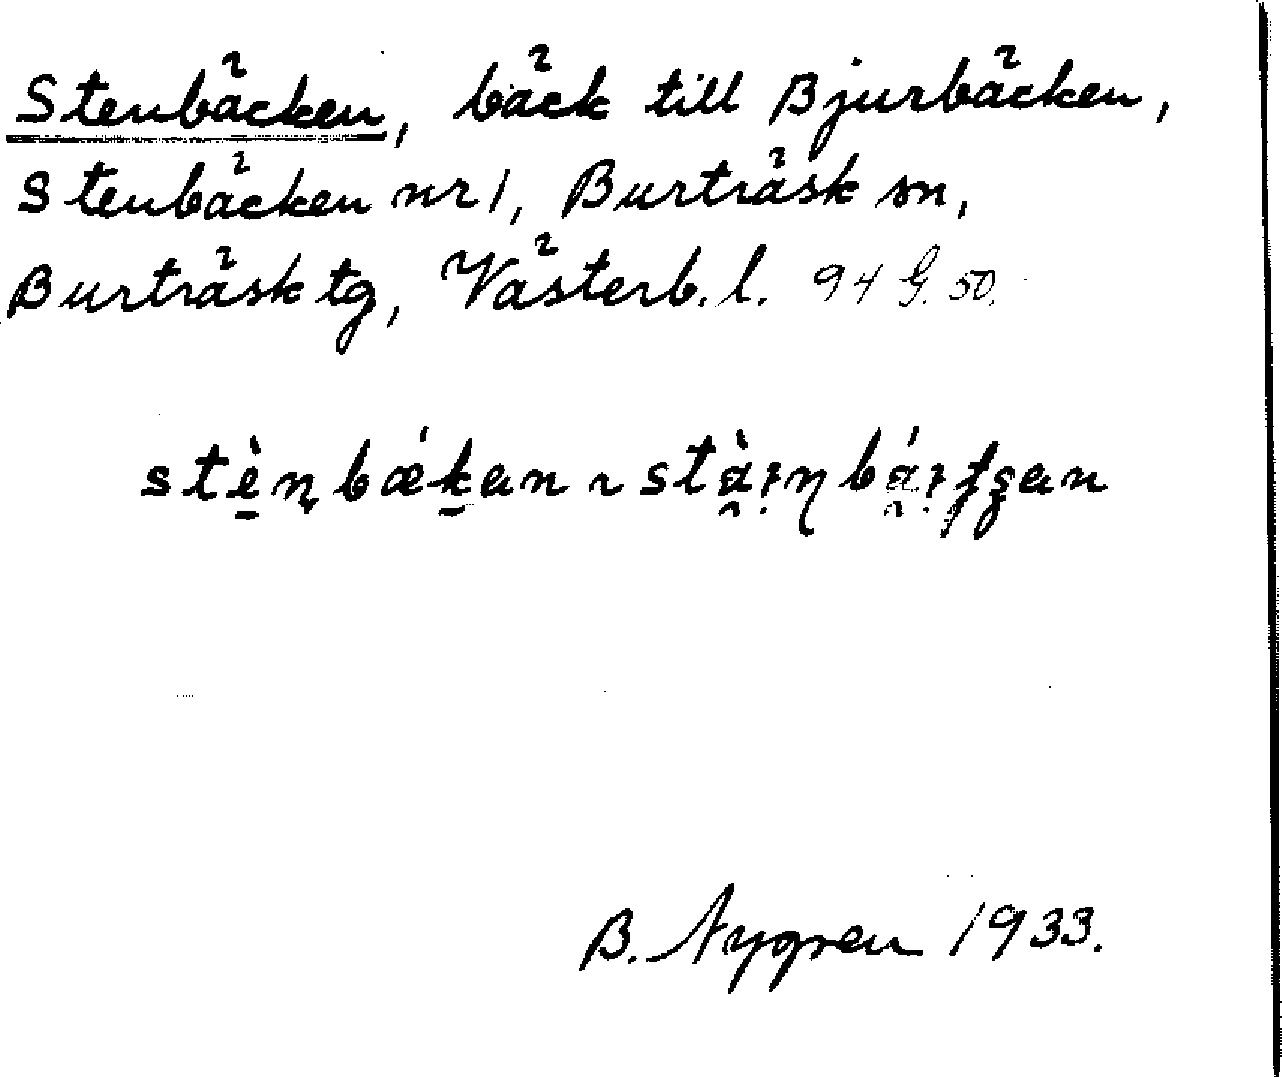 Stenbäcken, bäck till Bjurbäcken,
Stenbäcken nr 1, Burträsk sn,
Burträsk tg, Västerb. l. 94 G. 50.
B. Nygren 1933.